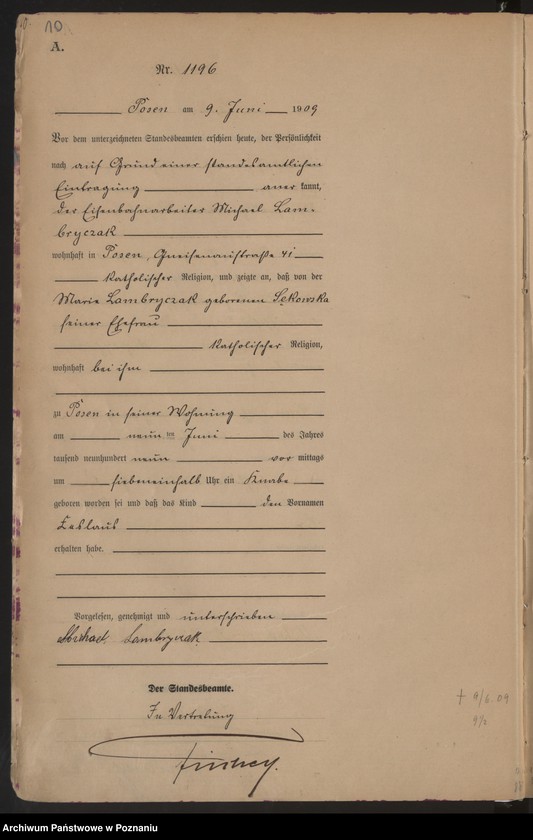 10.
A.
Nr. 1196
Posen am 9. Juni 1909
Vor dem unterzeichneten Standesbeamten erschien heute, der Persönlichkeit
nach auf Grund einer standesamtlichen
Eintragung anerkannt,
der Eisenbahnarbeiter Michael Lam-
bryczak
wohnhaft in Posen, Gneisenaustraße 41
katholischer Religion, und zeigte an, daß von der
Marie Lambryczak geborenen Sękowska
seiner Ehefrau
katholischer Religion,
wohnhaft bei ihm
zu Posen in seiner Wohnung
am neunten Juni des Jahres
tausend neunhundert neun vor mittags
um siebeneinhalb Uhr ein Knabe
geboren worden sei und daß das Kind den Vornamen
Zeslaus
erhalten habe.
Vorgelesen, genehmigt und unterschrieben
Michael Lambryczak
Der Standesbeamte.
In Vertretung
+ 9/6. 09
Archiwum Państwowe w Poznaniu